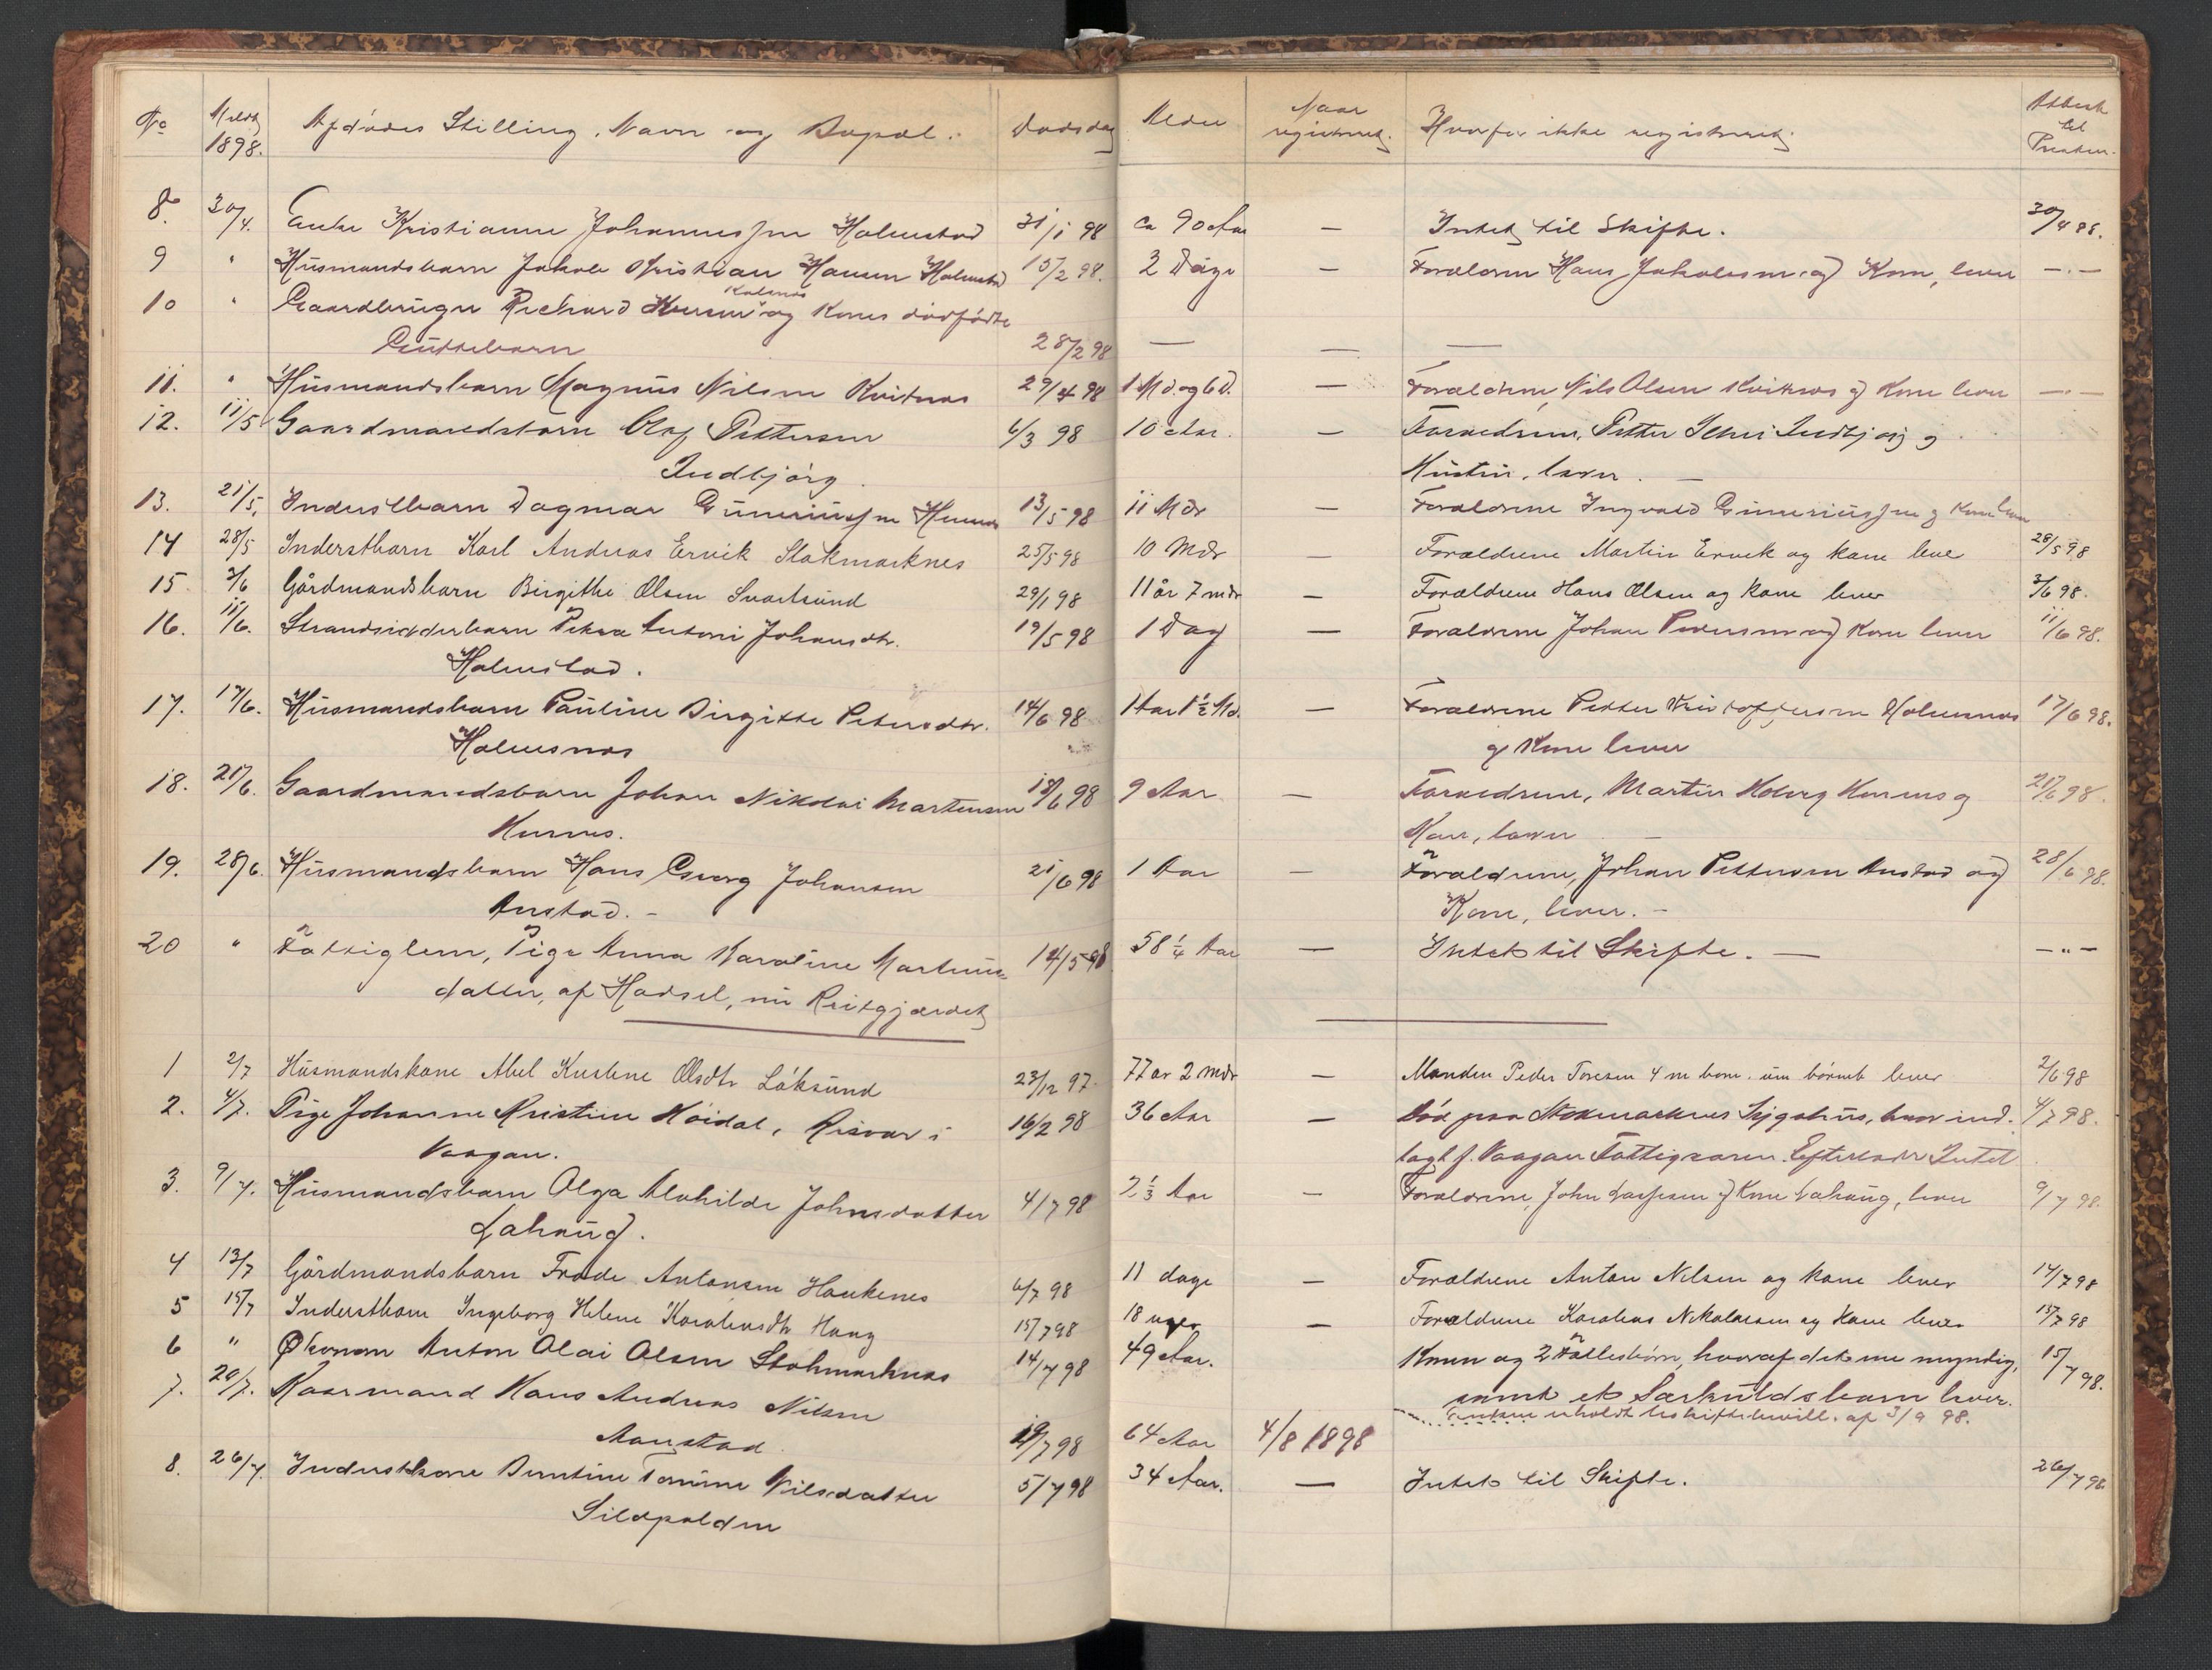 No Meldt 1898. Afdødes Stilling, Navn og Bopæl. Dødsdag Alder Naar registreret. Hvorfor ikke registreret. Attest til Presten.
8. 30/4. Enke Kristianne Johannessen Holmstad 31/1 98 ca 90 Aar — Intet til Skifte. 30/4 98.
9 " Husmandsbarn Jakob Kristian Hansen Holmstad 15/2 98. 2 Dage — Forældrene Hans Jakobsen og Kone, lever —„—
10 " Gaardbruger Richard Kvitnes og Kones dødfødte
Guttebarn 28/2 98 — — —
11. " Husmandsbarn Magnus Nilsen Kvitnes 29/4 98 1 Md. og 6 D. — Forældrene, Nils Olsen Kvitnes og Kone lever —„—
12. 11/5 Gaardmandsbarn Olaf Pettersen 6/3 98 10 Aar. — Forældrene, Petter Indbjørg og
Indbjørg. Hustru, lever. —
13. 21/5. Inderstbarn Dagmar Guneriussen 13/5 98 11 Mdr — Forældrene Ingvald Guneriussen og Kone lever
14 28/5 Inderstbarn Karl Andreas Ervik Stokmarknes 25/5 98 10 Mdr — Forældrene Martin Ervik og kone lever 28/5 98
15 3/6 Gårdmandsbarn Birgithe Olsen Svartsund 29/1 98 11 år 7 mdr — Forældrene Hans Olsen og kone lever 3/6 98.
16. 11/6. Strandsidderbarn Petra Antoni Johansdtr. 19/5 98 1 Dag — Forældrene Johan Pedersen og Kone lever 11/6 98.
Holmstad.
17. 17/6. Husmandsbarn Pauline Birgitte Petersdtr. 14/6 98 1 Aar 1½ Md. — Forældrene Petter Kristoffersen Holmsnes 17/6 98.
Holmsnes og Kone lever
18. 21/6. Gaardmandsbarn Johan Nikolai Martensen 18/6 98 9 Aar — Forældrene, Martin og 21/6 98.
Kone, lever —
19. 28/6. Husmandsbarn Hans Georg Johansen 21/6 98 1 Aar — Forældrene, Johan Pettersen Anstad og 28/6 98.
Anstad. — Kone, lever. —
20 " Fattiglem, Pige Anna Karoline Martinus- 14/5 98 58 ¼ Aar — Intet til Skifte. — —„—
datter, af Hadsel, nu Reitgjærdet
1 2/7 Husmandskone Abel Kristene Olsdtr Løksund 23/12 97. 77 år 2 mdr — Manden Peder Toresen 4 m børn lever 2/6 98
2. 4/7. Pige Johanne Kristine Høidal, Risvær i 16/2 98 36 Aar — Død paa Stokmarknes Sygehus, hvor ind- 4/7 98.
Vaagan. lagt f. Vaagan Fattigvæsen. Efterlader Intet
3. 9/7. Husmandsbarn Olga Alvhilde Johnsdatter 4/7 98 2 ⅓ Aar — Forældrene, John og Kone Lahaug, lever 9/7 98.
Lahaug.
4 13/7 Gårdmandsbarn Frode Antonsen Haukenes 6/7 98 11 dage — Forældrene Anton Nilsen og kone lever 14/7 98
5 15/7 Inderstbarn Ingeborg Helene Karoleusdtr Haug 15/7 98 18 uger — Forældrene Karoleus Nikolaisen og Kone lever 15/7 98
6 " Økonom Anton Olai Olsen Stokmarknes 14/7 98 49 Aar. Konen og 2 Fællesbørn, hvoraf det ene myndig, 15/7 98.
7. 20/7. Kaarmand Hans Andreas Nilsen samt et Særkuldsbarn lever.
Enken erholdt uskiftebevill. af 3/9 98.
Aanstad. 19/7 98 64 Aar 4/8 1898
8. 26/7. Inderstkone Berntine Tomine Nilsdatter 5/7 98 34 Aar. — Intet til Skifte. 26/7 98.
Sildpolden